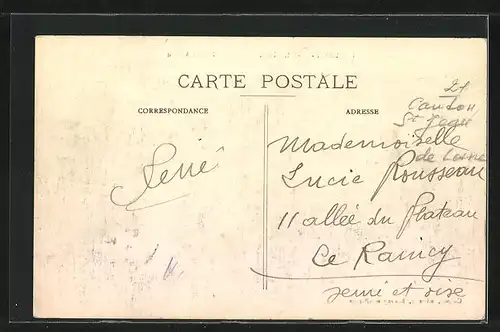 CARTE POSTALE
CORRESPONDANCE
ADRESSE
21
St Jean
de Losne
Mademoiselle
Lucie Rousseau
11 allée du Plateau
Le Raincy
Seine et Oise
René